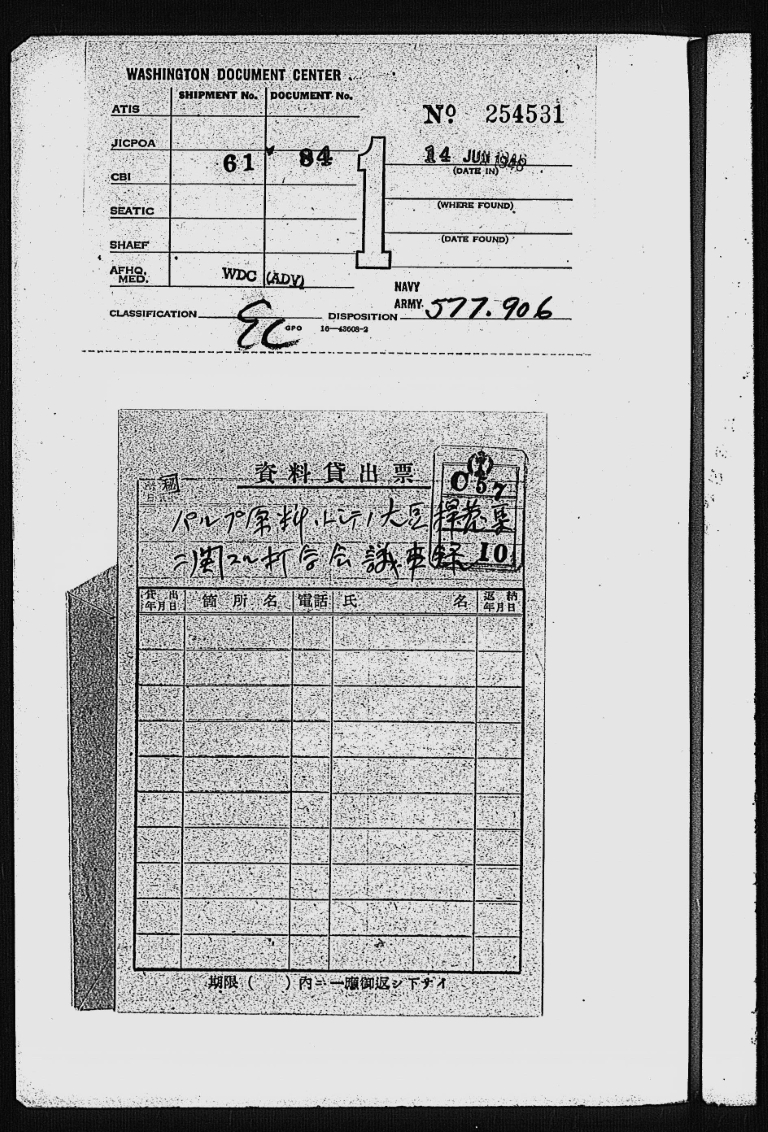 WASHINGTON DOCUMENT CENTER
SHIPMENT No. DOCUMENT No.
ATIS
No 254531
JICPOA
61 84
1
14 JUN 1946
(DATE IN)
CBI
SEATIC
(WHERE FOUND)
SHAEF
(DATE FOUND)
AFHQ. MED.
WDC (ADV)
NAVY
ARMY 577.906
CLASSIFICATION EC DISPOSITION
GPO 16—43608-2
資料貸出票
秘
057
10
パルプ原料トシテノ大豆稈蒐集
ニ関スル打合会議事録
貸出年月日 箇所名 電話 氏名 返納年月日
期限( )内ニ一応御返シ下サイ